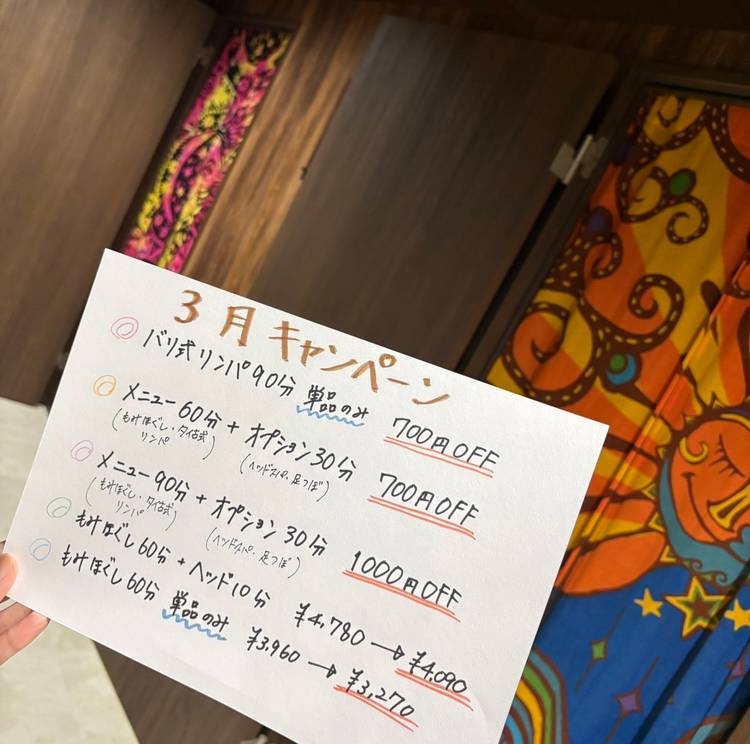 3月キャンペーン
バリ式リンパ90分 単品のみ 700円OFF
メニュー60分 + オプション30分 700円OFF
(もみほぐし・タイ古式 (ヘッドスパ・足つぼ)
リンパ)
メニュー90分 + オプション30分 1000円OFF
(もみほぐし・タイ古式 (ヘッドスパ・足つぼ)
リンパ)
もみほぐし60分 + ヘッド10分 ¥4,780 → ¥4,090
もみほぐし60分 単品のみ ¥3,960 → ¥3,270